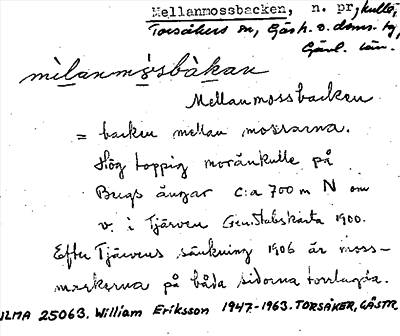 Mellanmossbacken, n. pr., kulle,
Torsåkers sn, Gästr. ö. doms. tg,
Gävl. län.
mèlanmósbàkan
Mellanmossbacken
= backen mellan mossarna.
Hög toppig moränkulle på
Bergs ängar c:a 700 m N om
v. i Tjärven Gen.stabskarta 1900.
Efter Tjärvens sänkning 1906 är moss-
markerna på båda sidorna torrlagda.
ILMA 25063. William Eriksson 1947-1963. TORSÅKER, GÄSTR.